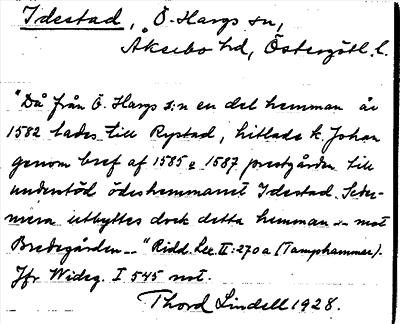 Idestad, Ö. Hargs sn,
Åkerbo hd, Östergötl. l.
"Då från Ö. Hargs s:n en del hemman år
1582 lades till Rystad, hitlade k Johan
genom bref af 1585 o 1587 prestgården till
understöd ödeshemmanet Idestad. Seder-
mera utbyttes dock detta hemman -- mot
Bredegården --" Ridd. Lex. II: 270 a (Tampshammer).
Jfr Wideg. I 545 not.
Thord Lindell 1928.